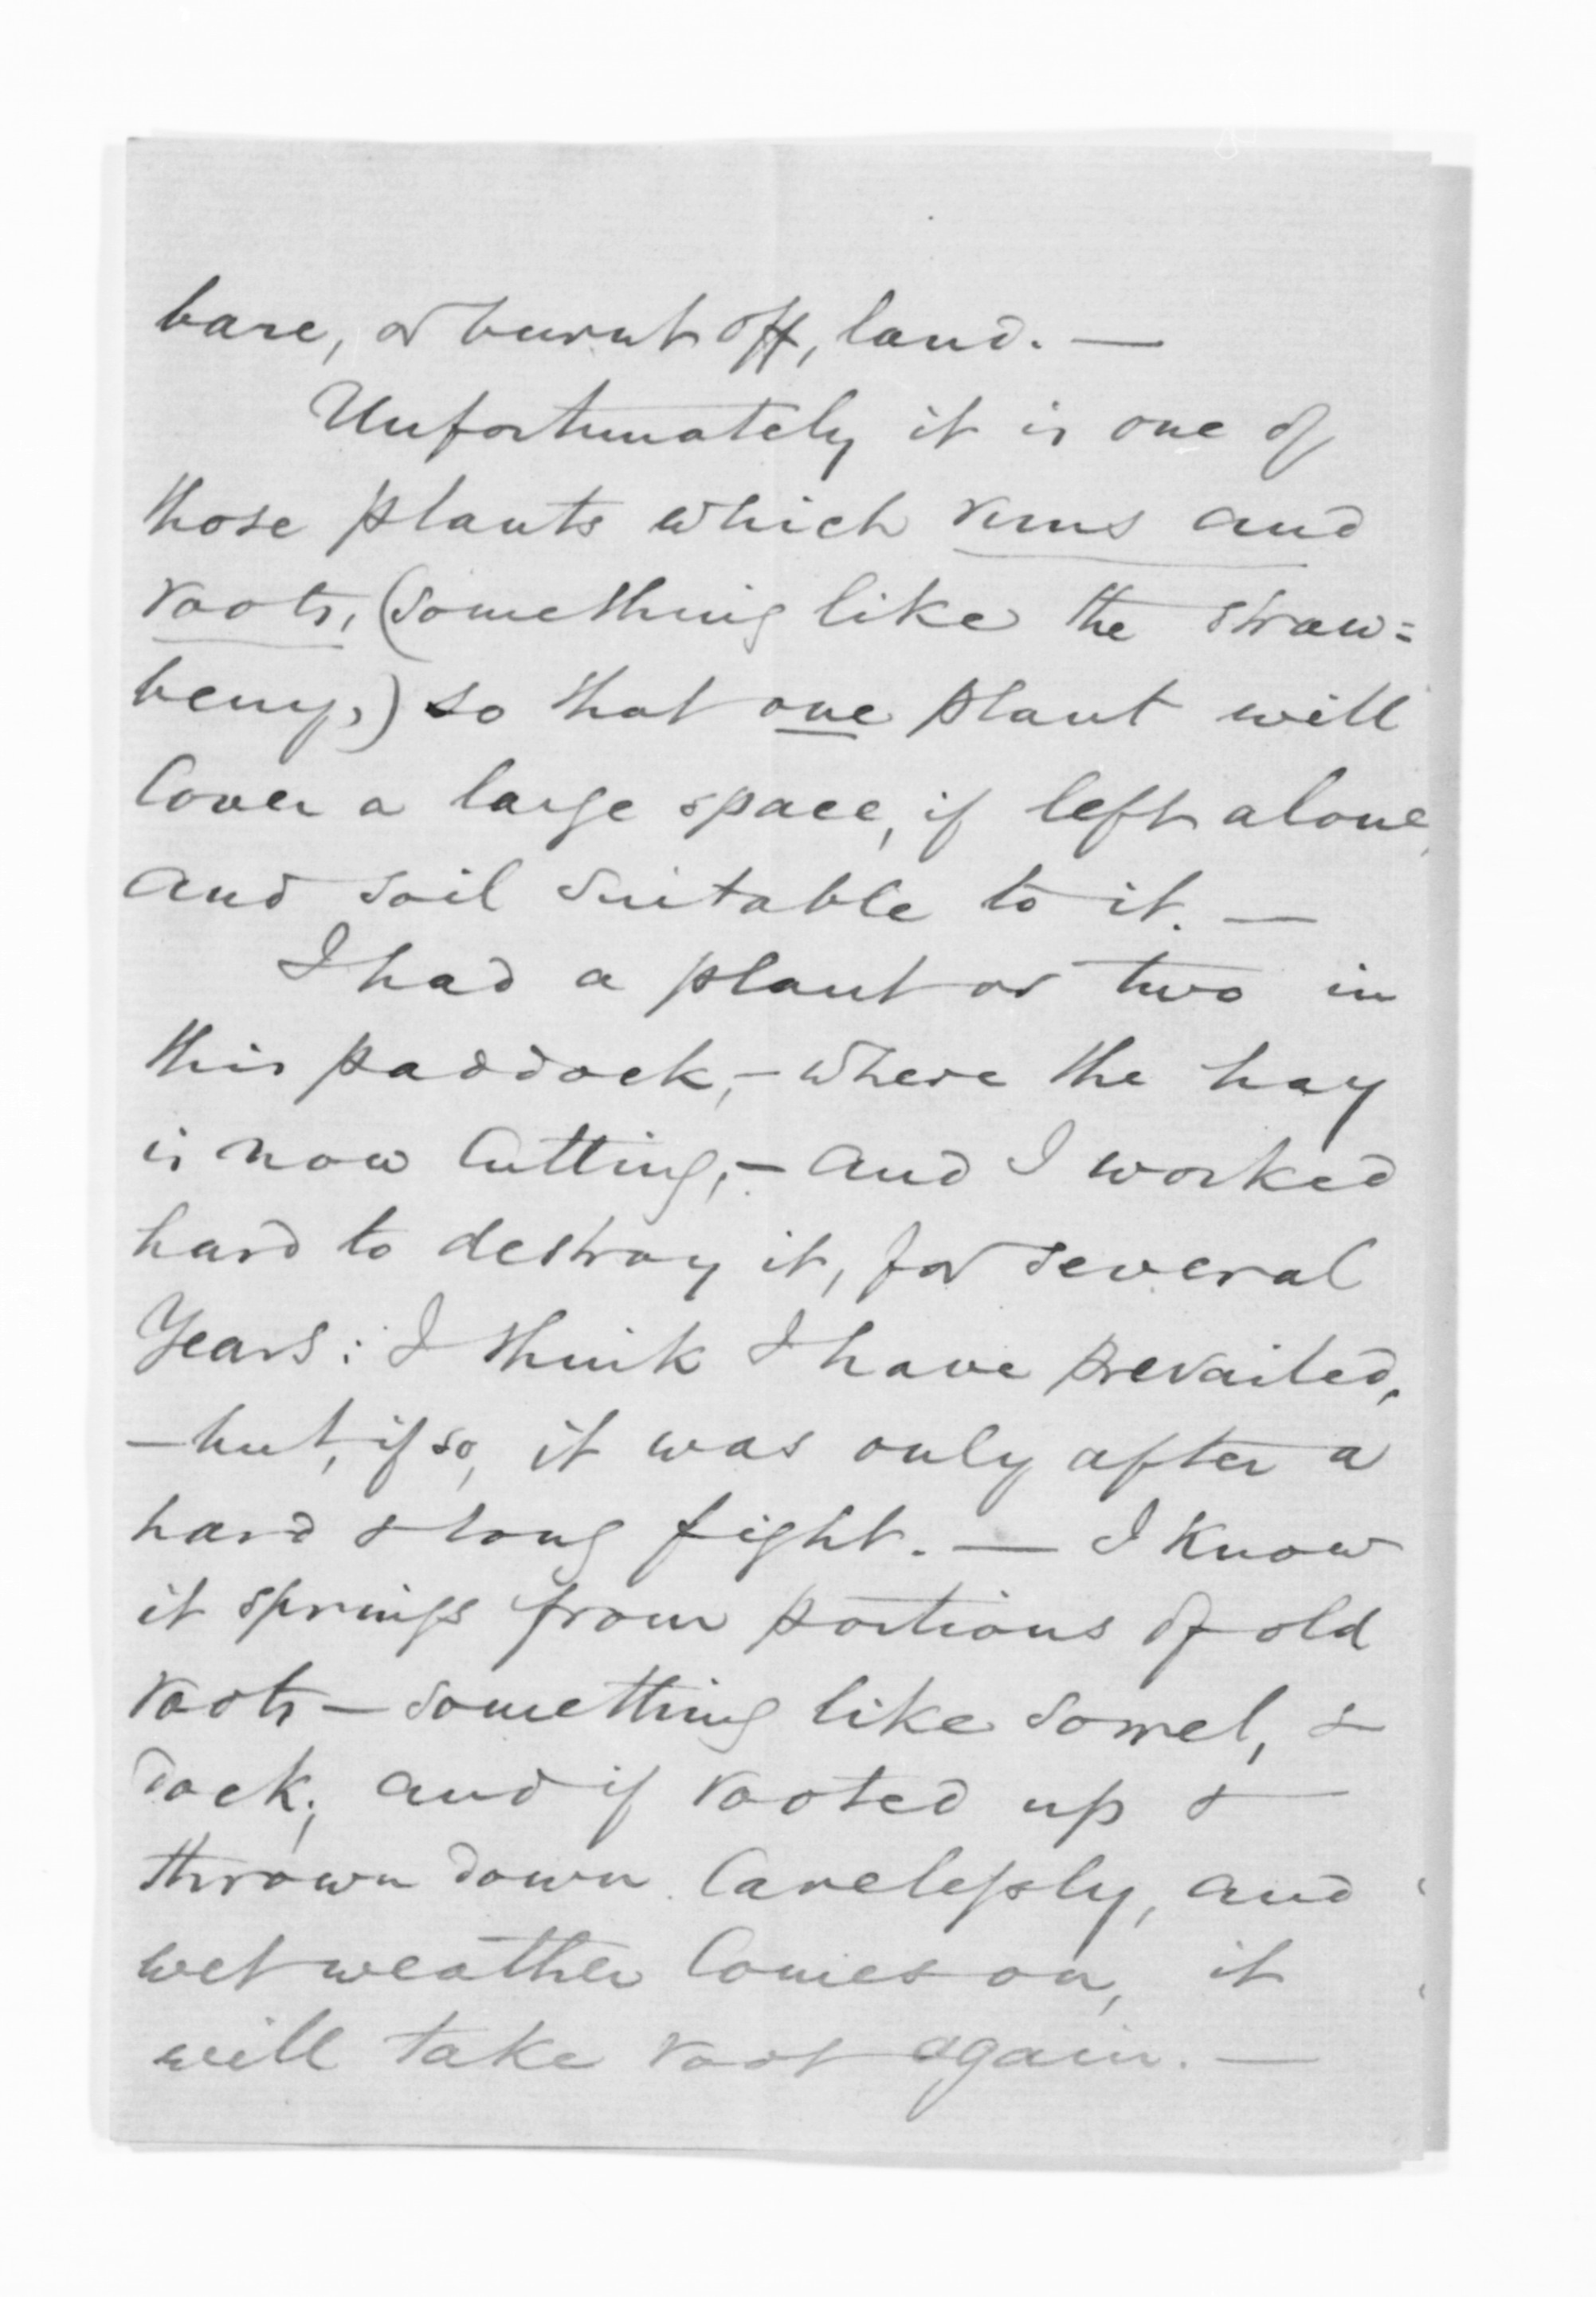 bare, or burnt off, land. —
Unfortunately it is one of
those plants which runs and
roots, (something like the straw=
berry,) so that one plant will
cover a large space, if left alone,
and soil suitable to it. —
I had a plant or two in
this paddock, – where the hay
is now cutting, – and I worked
hard to destroy it, for several
years: I think I have prevailed,
– but, if so, it was only after a
hard & long fight. — I know
it springs from portions of old
roots – something like sorrel, &
dock; and if rooted up &
thrown down carelessly, and
wet weather comes on, it
will take root again. —